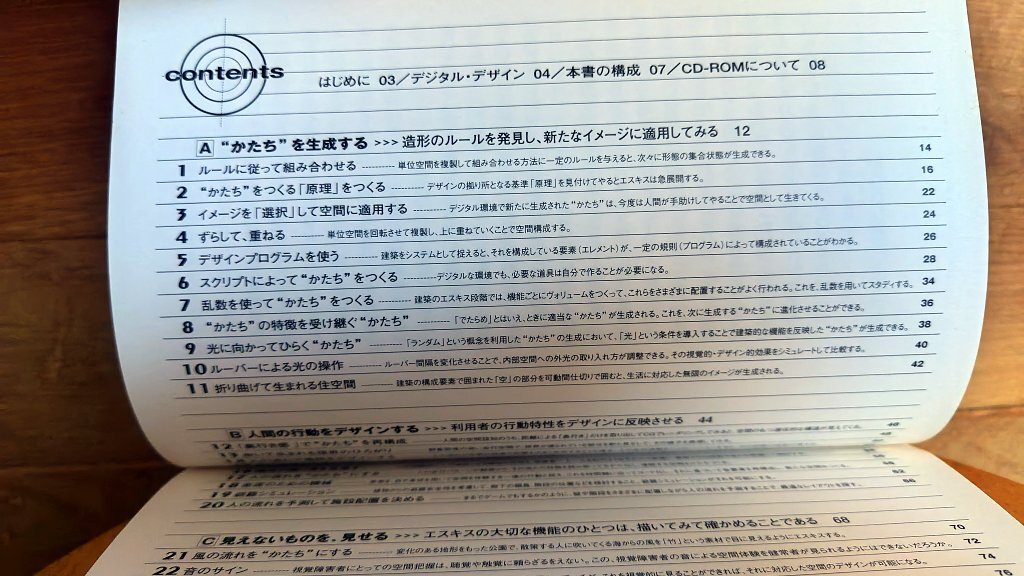 contents
はじめに 03／デジタル・デザイン 04／本書の構成 07／CD-ROMについて 08
A “かたち”を生成する >>> 造形のルールを発見し、新たなイメージに適用してみる 12
1 ルールに従って組み合わせる ---------- 単位空間を複製して組み合わせる方法に一定のルールを与えると、次々に形態の集合状態が生成できる。 14
2 “かたち”をつくる「原理」をつくる ---------- デザインの拠り所となる基準「原理」を見付けてやるとエスキスは急展開する。 16
3 イメージを「選択」して空間に適用する ---------- デジタル環境で新たに生成された“かたち”は、今度は人間が手助けしてやることで空間として生きてくる。 22
4 ずらして、重ねる ---------- 単位空間を回転させて複製し、上に重ねていくことで空間構成する。 24
5 デザインプログラムを使う ---------- 建築をシステムとして捉えると、それを構成している要素（エレメント）が、一定の規則（プログラム）によって構成されていることがわかる。 26
6 スクリプトによって“かたち”をつくる ---------- デジタルな環境でも、必要な道具は自分で作ることが必要になる。 28
7 乱数を使って“かたち”をつくる ---------- 建築のエスキス段階では、機能ごとにヴォリュームをつくって、これらをさまざまに配置することがよく行われる。これを、乱数を用いてスタディする。 34
8 “かたち”の特徴を受け継ぐ“かたち” ---------- 「でたらめ」とはいえ、ときに適当な“かたち”が生成される。これを、次に生成する“かたち”に進化させることができる。 36
9 光に向かってひらく“かたち” ---------- 「ランダム」という概念を利用した“かたち”の生成において、「光」という条件を導入することで建築的な機能を反映した“かたち”が生成できる。 38
10 ルーバーによる光の操作 ---------- ルーバー間隔を変化させることで、内部空間への外光の取り入れ方が調整できる。その視覚的・デザイン的効果をシミュレートして比較する。 40
11 折り曲げて生まれる住空間 ---------- 建築の構成要素で囲まれた「空」の部分を可動間仕切りで囲むと、生活に対応した無限のイメージが生成される。 42
B 人間の行動をデザインする >>> 利用者の行動特性をデザインに反映させる 44
12 “かたち”を再構成
19 シミュレーション
20 人の流れを予測して施設配置を決める 66
C 見えないものを、見せる >>> エスキスの大切な機能のひとつは、描いてみて確かめることである 68
21 風の流れを“かたち”にする ---------- 変化のある地形をもった公園で、散策する人に吹いてくる海からの風を「竹」という素材で目に見えるようにエスキスする。 70
22 音のサイン ---------- 視覚障害者にとっての空間把握は、聴覚や触覚に頼らざるをえない。この、視覚障害者の音による空間体験を健常者が見られるようにはできないだろうか。 72
これを視覚的に見ることができれば、それに対応した空間のデザインが可能になる。 74
76